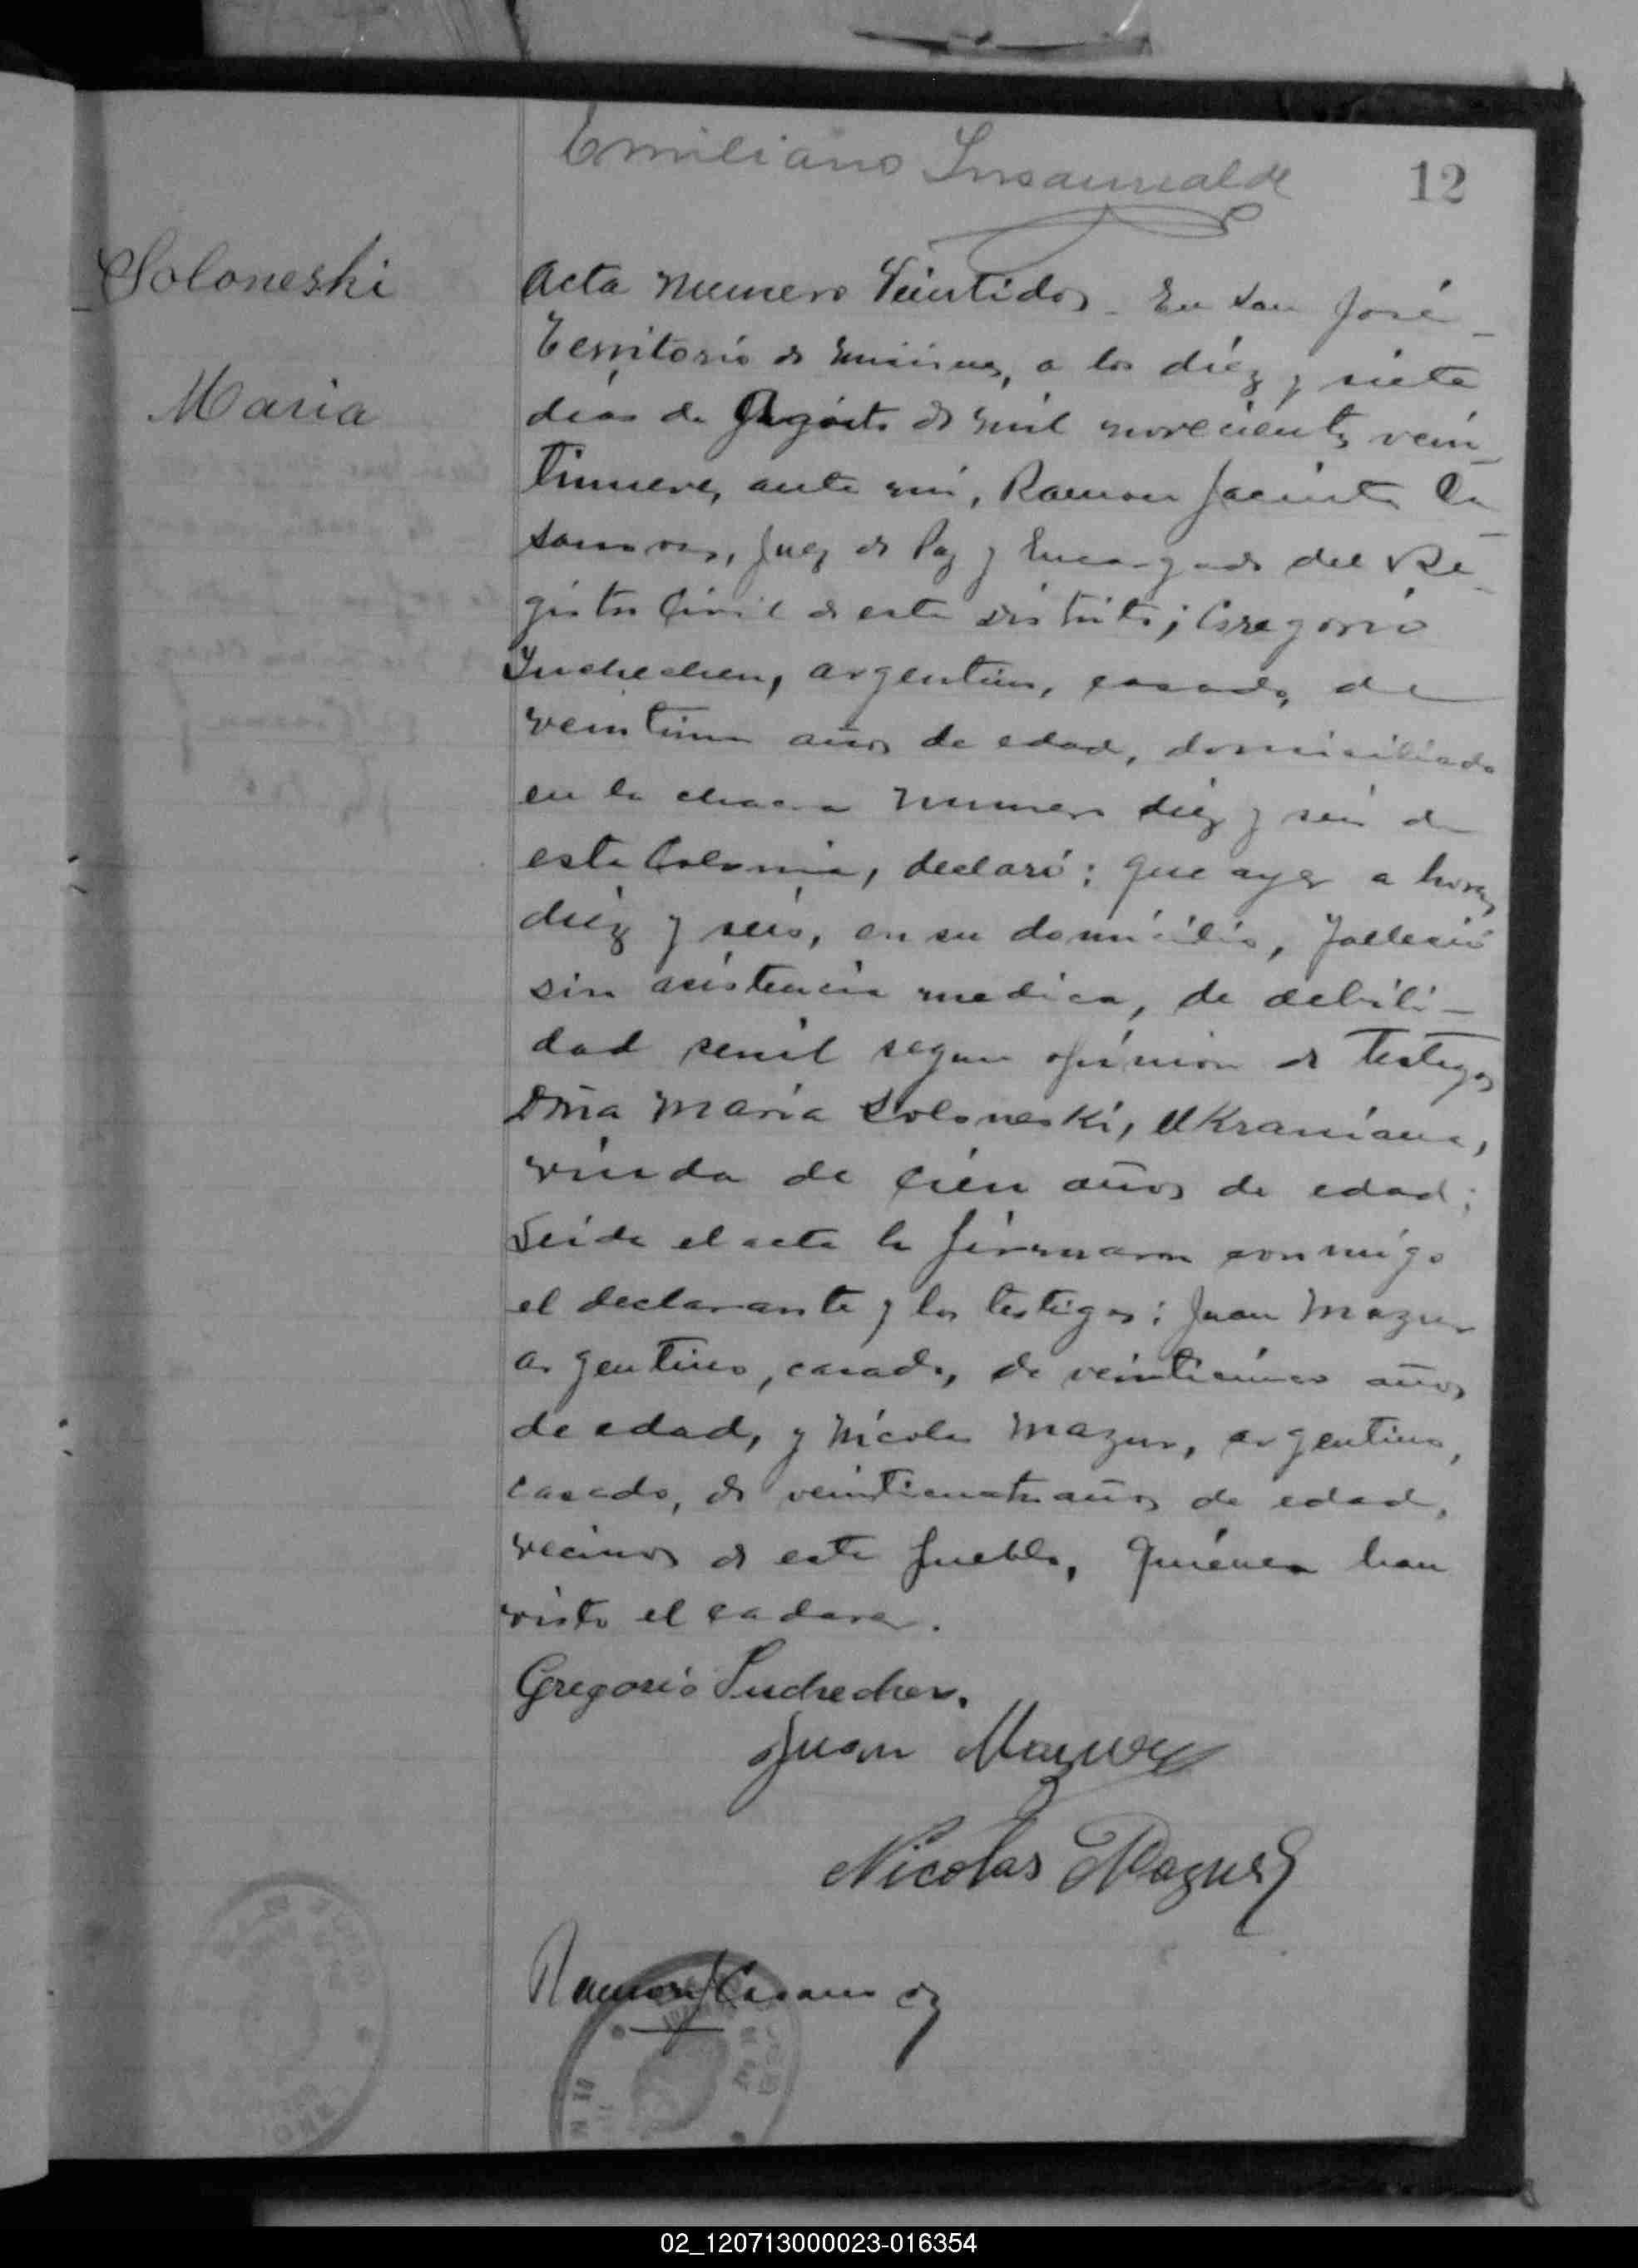 Emiliano Insaurralde
12
Soloneski
Maria
Acta Numero Veintidos - En San José -
Territorio de Misiones, a los diéz y siete
dias de Agosto de mil novecientos vein
tinueve, ante mi, Ramon Jacinto Ca
samoz, Juez de Paz y Encargado del Re
gistro Civil de este distrito; Gregorio
Suchechen, argentino, casado, de
veintiun años de edad, domiciliado
en la chacra numero diéz y seis de
esta Colonia, declaró: que ayer a horas
diéz y seis, en su domicilio, falleció
sin asistencia medica, de debili-
dad senil segun opinion de testigos
Dña Maria Soloneski, Ukraniana,
viuda de cien años de edad;
Leida el acta la firmaron conmigo
el declarante y los testigos: Juan Mazur
argentino, casado, de veinticinco años
de edad, y Nicolas Mazur, argentino,
casado, de veinticuatro años de edad,
vecinos de este pueblo, quienes han
visto el cadaver.
Gregorio Suchechen.
Juan Mazur
Nicolas Mazur
Ramon J Casamoz
02_120713000023-016354